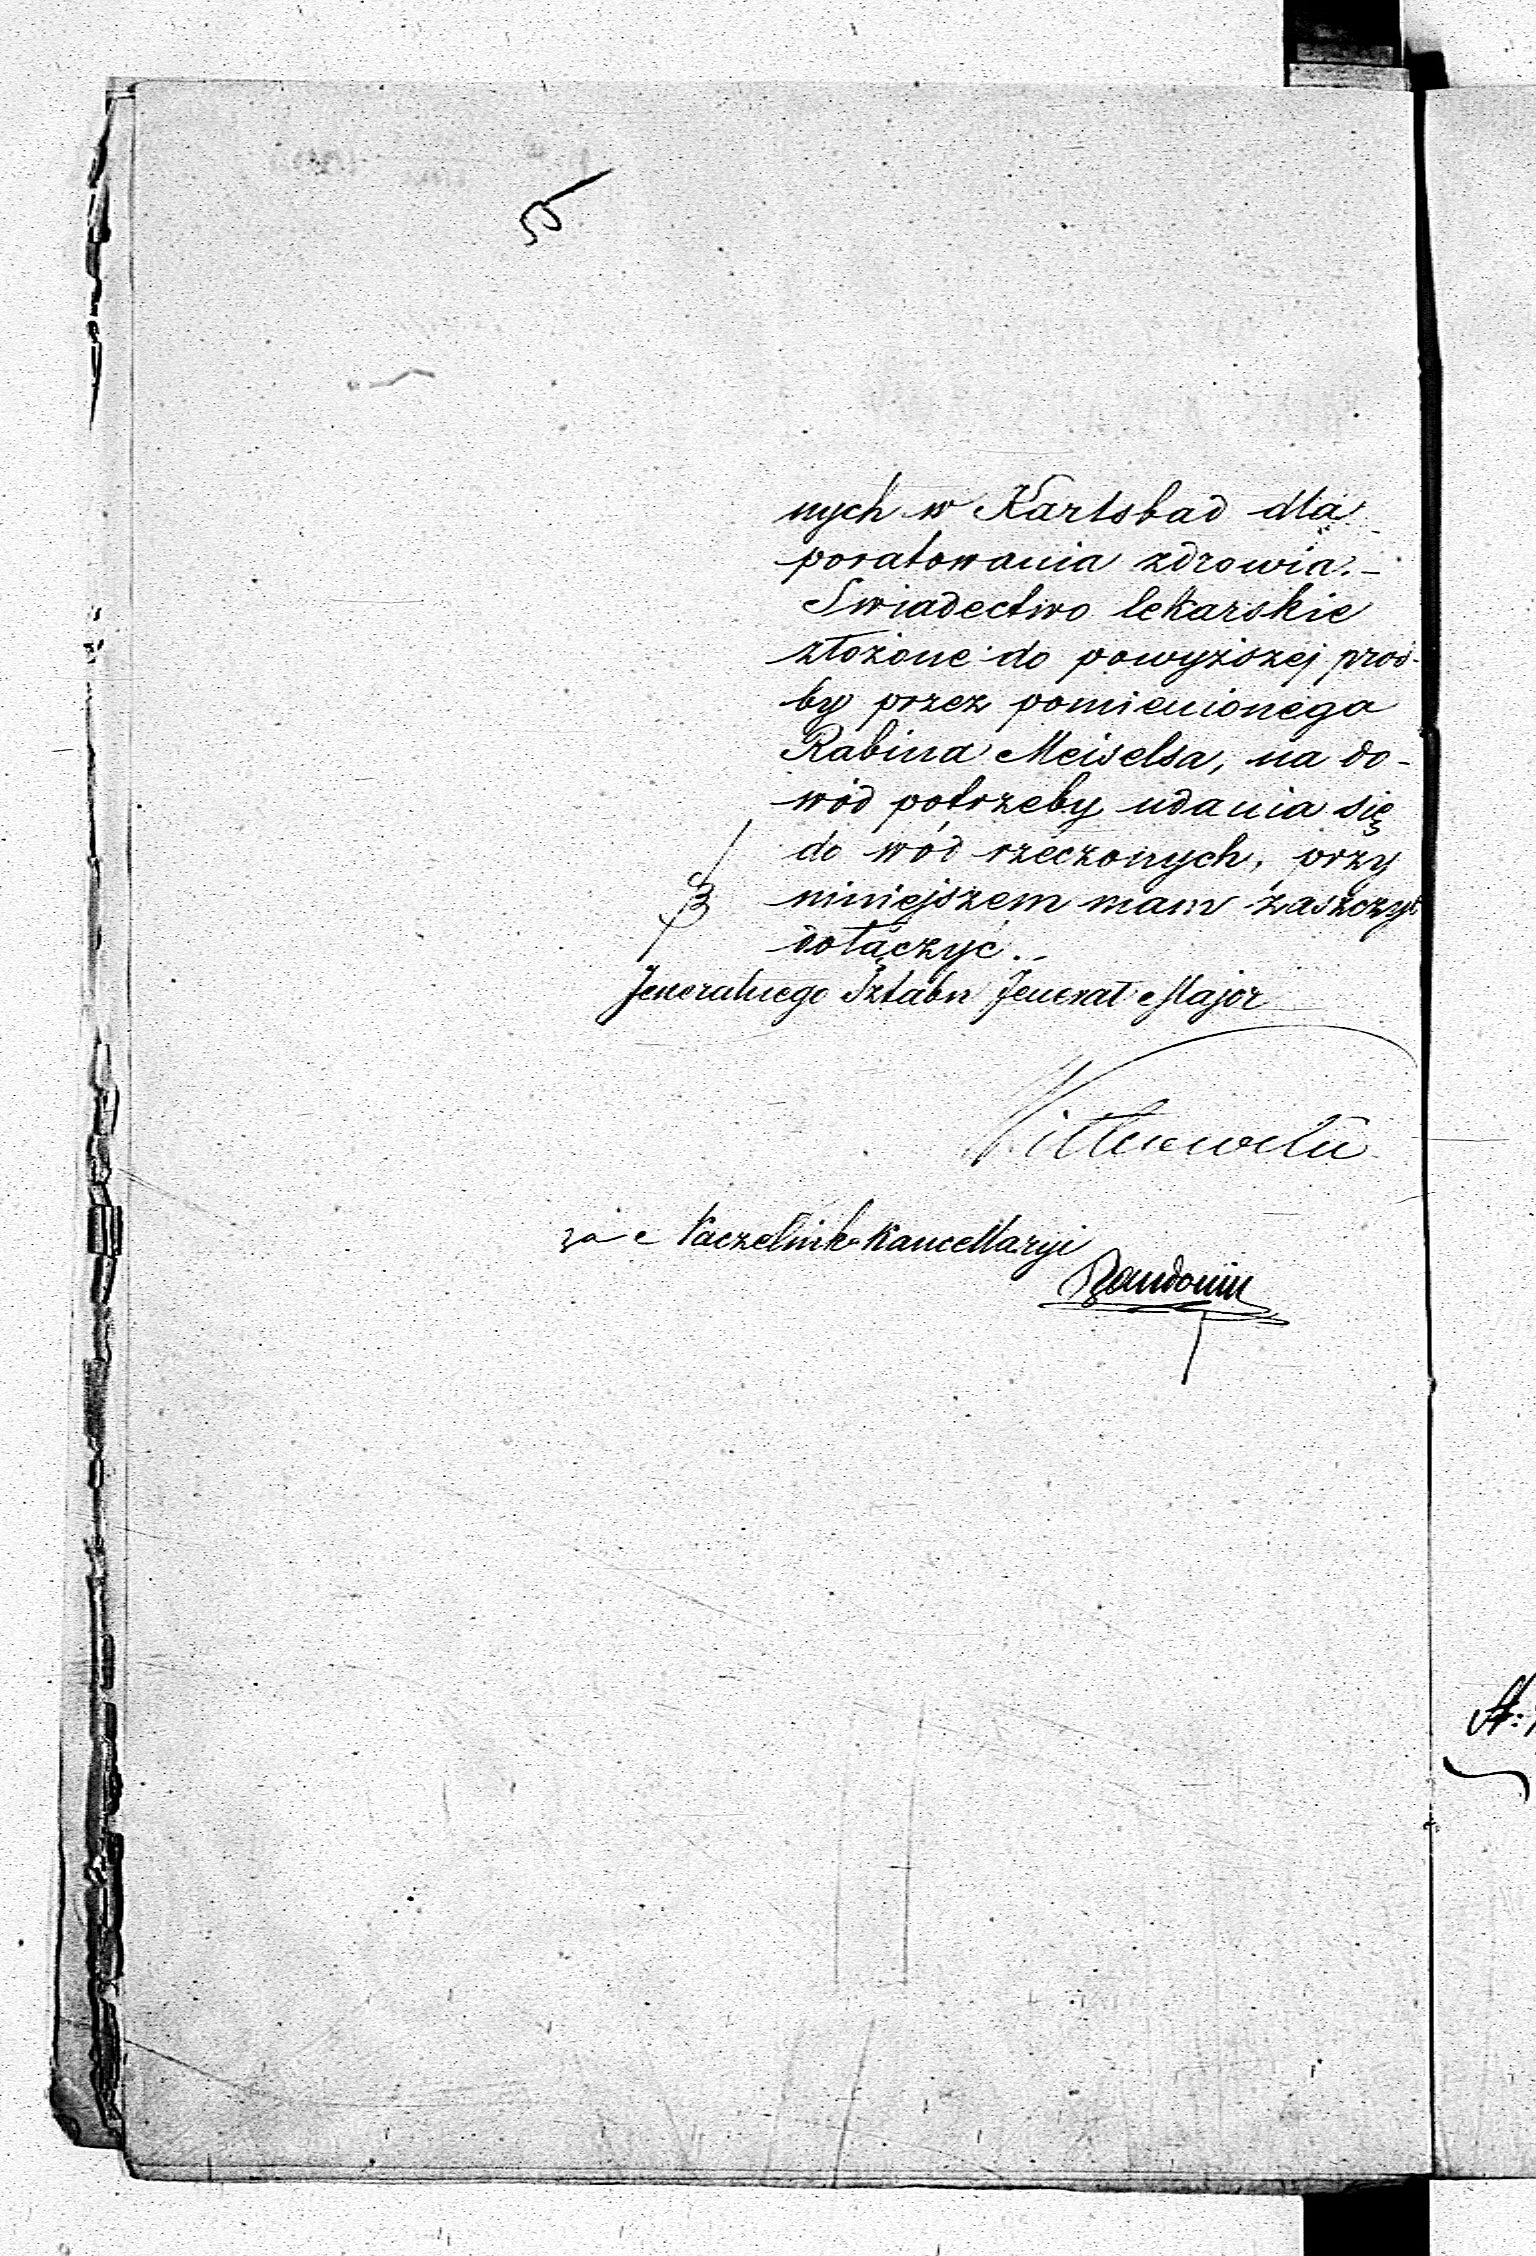 nych w Karlsbad dla
poratowania zdrowia. –
Swiadectwo lekarskie
złożone do powyższej proś-
by przez pomienionego
Rabina Meiselsa, na do-
wód potrzeby udania się
do wód rzeczonych, przy
niniejszem mam zaszczyt
dołączyć. –
Jeneralnego Sztabu Jenerał Major
za Naczelnik Kancellaryi
Baudouin